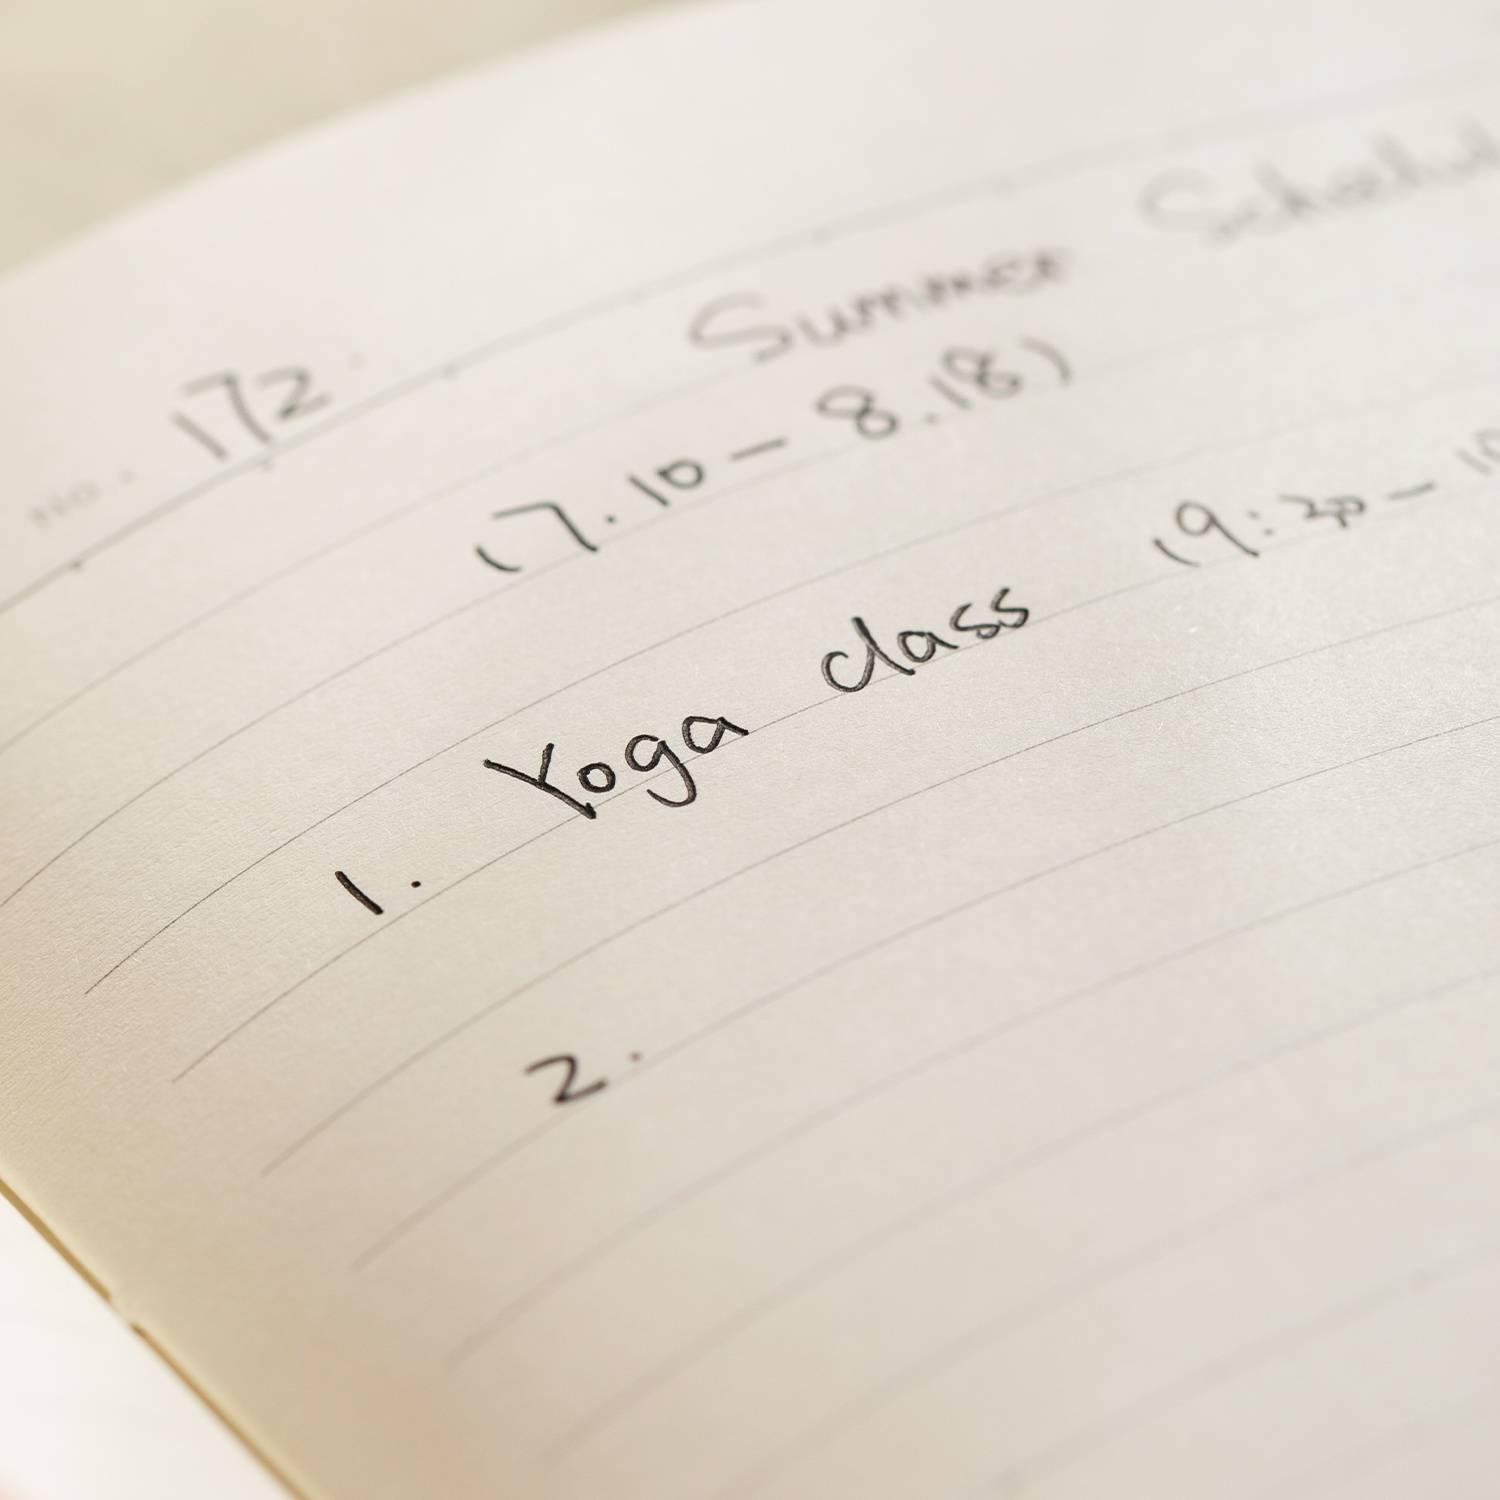 No. 172.
Summer Schedul
(7.10 - 8.18)
1. Yoga class (9:30 - 10
2.